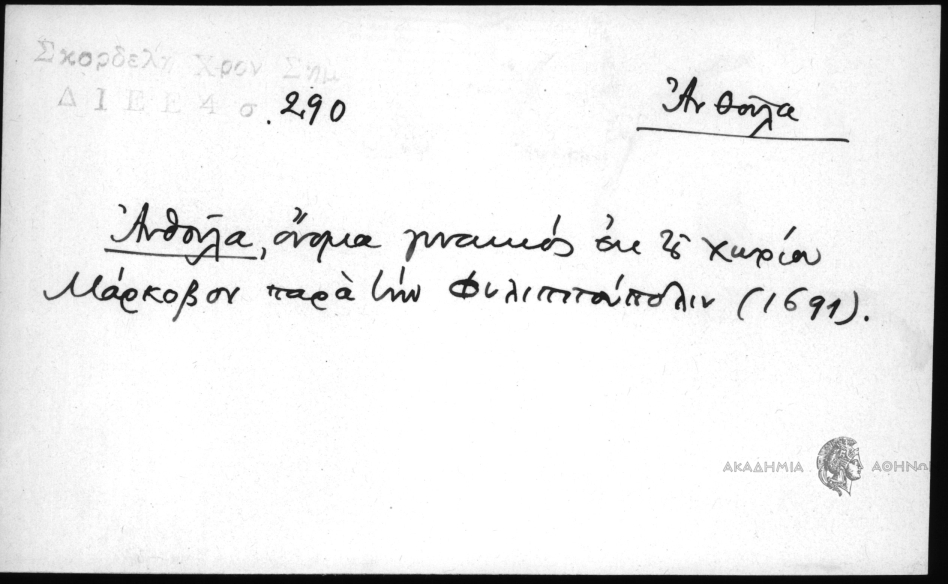 Σκορδέλη Χρον Σημ
ΔΙΕΕ 4 σ. 290
Ἀνθοῦλα
Ἀνθοῦλα, ὄνομα γυναικός ἐκ τοῦ χωρίου
Μάρκοβον παρὰ τὴν Φιλιππούπολιν (1691).
ΑΚΑΔΗΜΙΑ ΑΘΗΝΩΝ